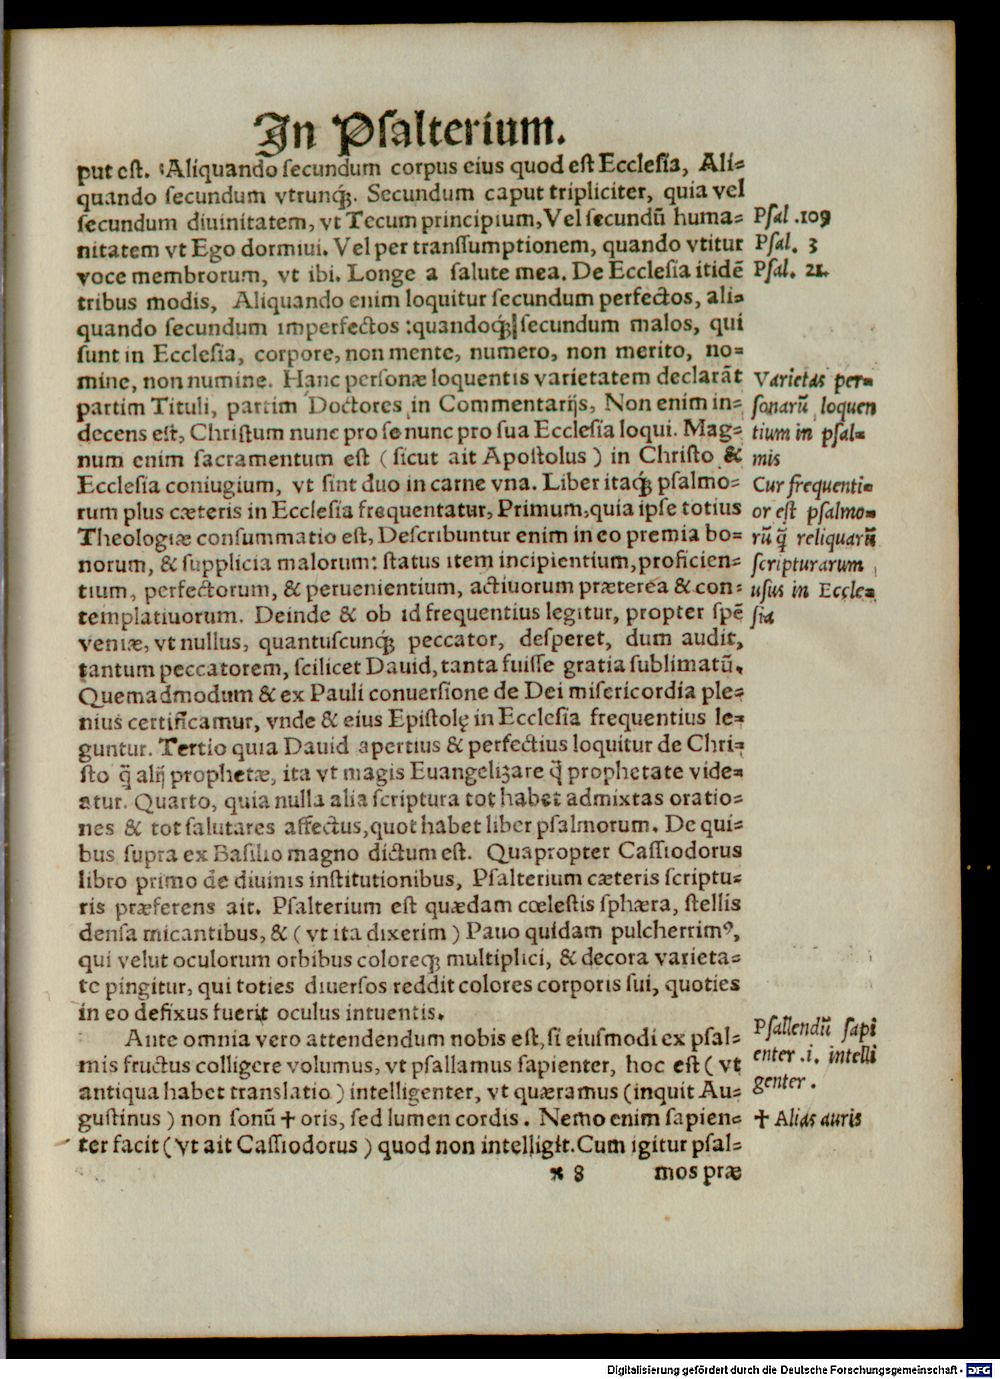 In Psalterium.
put est. :Aliquando secundum corpus eius quod est Ecclesia, Ali=
quando secundum vtrunq́ꝫ. Secundum caput tripliciter, quia vel
secundum diuinitatem, vt Tecum principium, Vel secundū huma=
nitatem vt Ego dormiui. Vel per transsumptionem, quando vtitur
voce membrorum, vt ibi. Longe a salute mea. De Ecclesia itidē
tribus modis, Aliquando enim loquitur secundum perfectos, ali=
quando secundum imperfectos :quandoq́ꝫ secundum malos, qui
sunt in Ecclesia, corpore, non mente, numero, non merito, no=
mine, non numine. Hanc personæ loquentis varietatem declarāt
partim Tituli, partim Doctores in Commentarijs, Non enim in=
decens est, Christum nunc pro se nunc pro sua Ecclesia loqui. Mag=
num enim sacramentum est ( sicut ait Apostolus ) in Christo &
Ecclesia coniugium, vt sint duo in carne vna. Liber itaq́ꝫ psalmo=
rum plus cæteris in Ecclesia frequentatur, Primum, quia ipse totius
Theologiæ consummatio est, Describuntur enim in eo premia bo=
norum, & supplicia malorum: status item incipientium, proficien=
tium, perfectorum, & peruenientium, actiuorum præterea & con=
templatiuorum. Deinde & ob id frequentius legitur, propter spē
veniæ, vt nullus, quantuscunq́ꝫ peccator, desperet, dum audit,
tantum peccatorem, scilicet Dauid, tanta fuisse gratia sublimatū.
Quemadmodum & ex Pauli conuersione de Dei misericordia ple=
nius certificamur, vnde & eius Epistolę in Ecclesia frequentius le=
guntur. Tertio quia Dauid apertius & perfectius loquitur de Chri=
sto q̄ alij prophetæ, ita vt magis Euangelizare q̄ prophetate vide=
atur. Quarto, quia nulla alia scriptura tot habet admixtas oratio=
nes & tot salutares affectus, quot habet liber psalmorum. De qui=
bus supra ex Basilio magno dictum est. Quapropter Cassiodorus
libro primo de diuinis institutionibus, Psalterium cæteris scriptu=
ris præferens ait. Psalterium est quædam cœlestis sphæra, stellis
densa micantibus, & ( vt ita dixerim ) Pauo quidam pulcherrimꝰ,
qui velut oculorum orbibus coloreq́ꝫ multiplici, & decora varieta=
te pingitur, qui toties diuersos reddit colores corporis sui, quoties
in eo defixus fuerit oculus intuentis.
Ante omnia vero attendendum nobis est, si eiusmodi ex psal=
mis fructus colligere volumus, vt psallamus sapienter, hoc est ( vt
antiqua habet translatio ) intelligenter, vt quæramus (inquit Au=
gustinus ) non sonū † oris, sed lumen cordis. Nemo enim sapien=
ter facit ( vt ait Cassiodorus ) quod non intelligit. Cum igitur psal=
8 mos præ
Psal .109
Psal. 3
Psal. 21.
Varietas per=
sonarū loquen
tium in psal=
mis
Cur frequenti=
or est psalmo=
rū q̄ reliquarū
scripturarum
usus in Eccle=
sia
Psallendū sapi
enter .i. intelli
genter .
† Alias auris
Digitalisierung gefördert durch die Deutsche Forschungsgemeinschaft - DFG